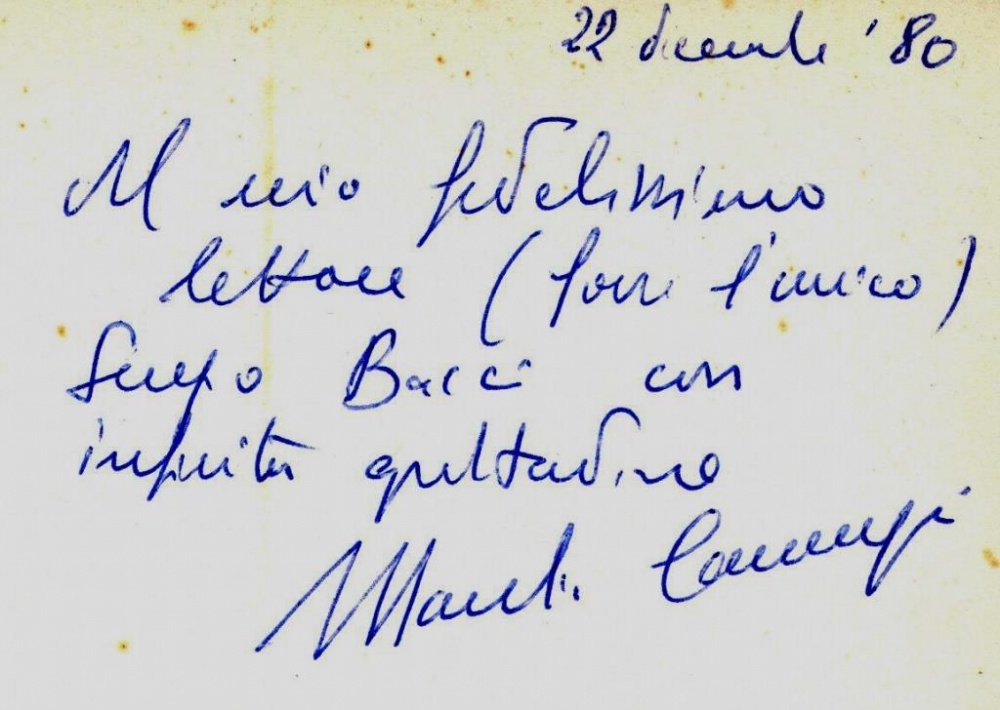 22 dicembre '80
Al mio fedelissimo
lettore (forse l'unico)
Sergo Bacci con
infinita gratitudine
Manlio Cancogni